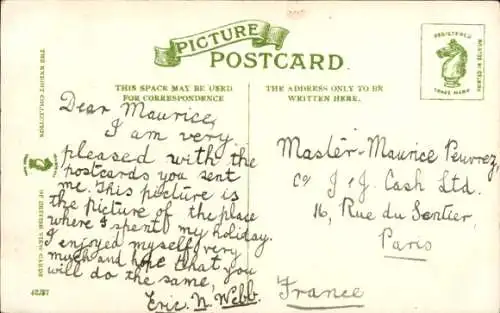 PICTURE
POSTCARD.
THIS SPACE MAY BE USED
FOR CORRESPONDENCE
THE ADDRESS ONLY TO BE
WRITTEN HERE.
REGISTERED
TRADE MARK
PRINTED IN BRITAIN
Dear Maurice,
I am very
pleased with the
postcards you sent
me. This picture is
the picture of the place
where I spent my holiday.
I enjoyed myself very
much and hope that you
will do the same,
Eric. N. Webb.
Master Maurice
c/o J & J. Cash Ltd.
16, Rue du Sentier,
Paris
France
OF BRITISH VIEW CARDS